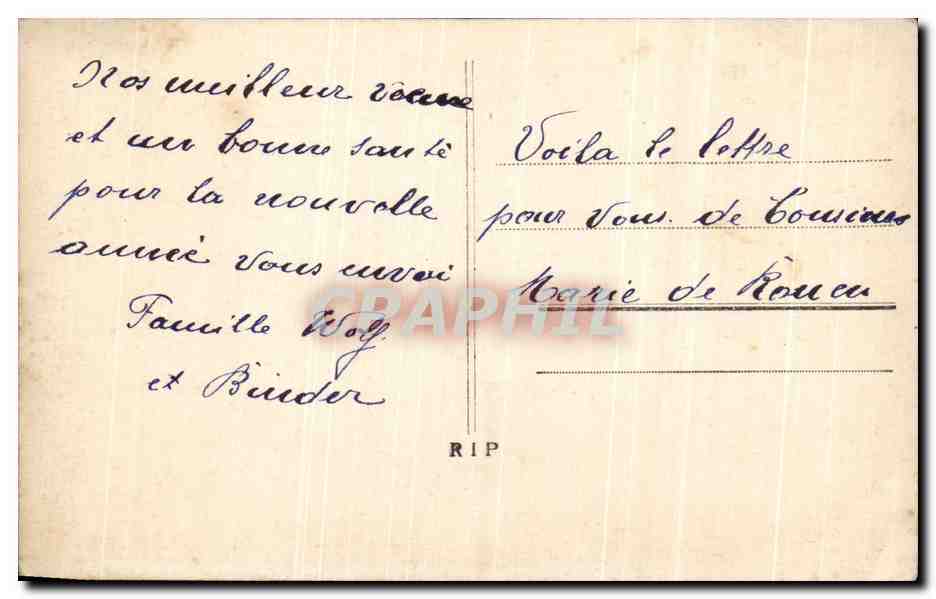 Nos meilleur voeux
et un bonne santé
pour la nouvelle
année vous envoi
Famille Wolf
et Binder
Voila le lettre
pour vous de Cousine
Marie de Rouen
CRAPHIL
RIP